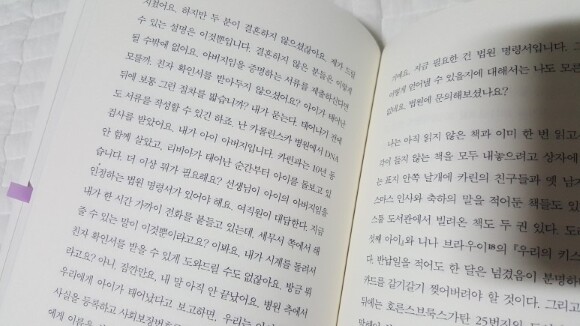 지셨어요. 하지만 두 분이 결혼하지 않으셨잖아요. 제가 드릴
수 있는 설명은 이것뿐입니다. 결혼하지 않은 분들은 이렇게
될 수밖에 없어요. 아버지임을 증명하는 서류를 제출하신다면
모를까. 친자 확인서를 받아두지 않으셨어요? 아이가 태어난
뒤에 보통 그런 절차를 밟습니까? 내가 묻는다. 태어나기 전에
도 서류를 작성할 수 있긴 하죠. 난 카롤린스카 병원에서 DNA
검사를 받았어요. 내가 아이 아버지입니다. 카린과는 10년 동
안 함께 살았고, 리비아가 태어난 순간부터 아이를 돌보고 있
습니다. 더 이상 뭐가 필요해요? 선생님이 아이의 아버지임을
인정하는 법원 명령서가 있어야 해요. 여직원이 대답한다. 지금
내가 한 시간 가까이 전화를 붙들고 있는데, 세무서 쪽에서 해
줄 수 있는 말이 이것뿐이라고요? 이봐요, 내가 시계를 돌려서
친자 확인서를 받을 수 있게 도와드릴 수도 없잖아요. 방금 뭐
라고요? 아니, 잠깐만요, 내 말 아직 안 끝났어요. 병원 측에서
우리에게 아이가 태어났다고 보고하면, 우리는 아이
사실을 등록하고 사회보장번호
에게 이름을
게요. 지금 필요한 건 법원 명령서입니다. 그
어떻게 얻어낼 수 있을지에 대해서는 나도 모른
없네요. 법원에 문의해보셨나요?
나는 아직 읽지 않은 책과 이미 한 번 읽고
각이 들지 않는 책을 모두 내놓으려고 상자에
는 표지 안쪽 날개에 카린의 친구들과 옛 남자
스마스 인사와 축하의 말을 적어둔 책들도 있
스톨 도서관에서 빌려온 책도 두 권 있다. 도리
첫째 아이』와 니나 브라우이의 『우리의 키스
다. 반납일을 적어도 한 달은 넘겼음이 분명하
카드를 갈기갈기 찢어버려야 할 것이다. 그리고
뒤에는 호른스브룩스가탄 25번지의